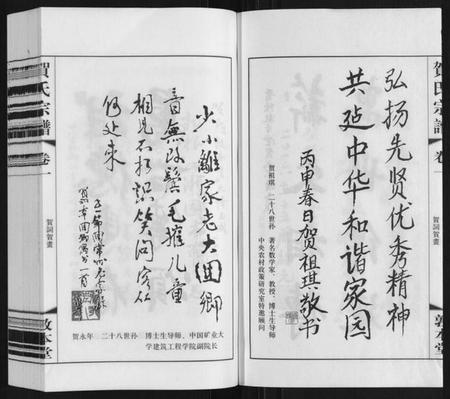 賀氏宗譜
卷一
賀詞賀畫
敦本堂
弘扬先贤优秀精神
共建中华和谐家园
丙申春日贺祖琪敬书
贺祖琪 二十八世孙 著名数学家、教授、博士生导师
中央农村政策研究室特邀顾问
少小離家老大回鄉
音無改鬢毛摧儿童
相見不相識笑问客从
何处来
贺永年 二十八世孙 博士生导师、中国矿业大
学建筑工程学院副院长
賀氏宗譜
卷一
賀詞賀畫
敦本堂